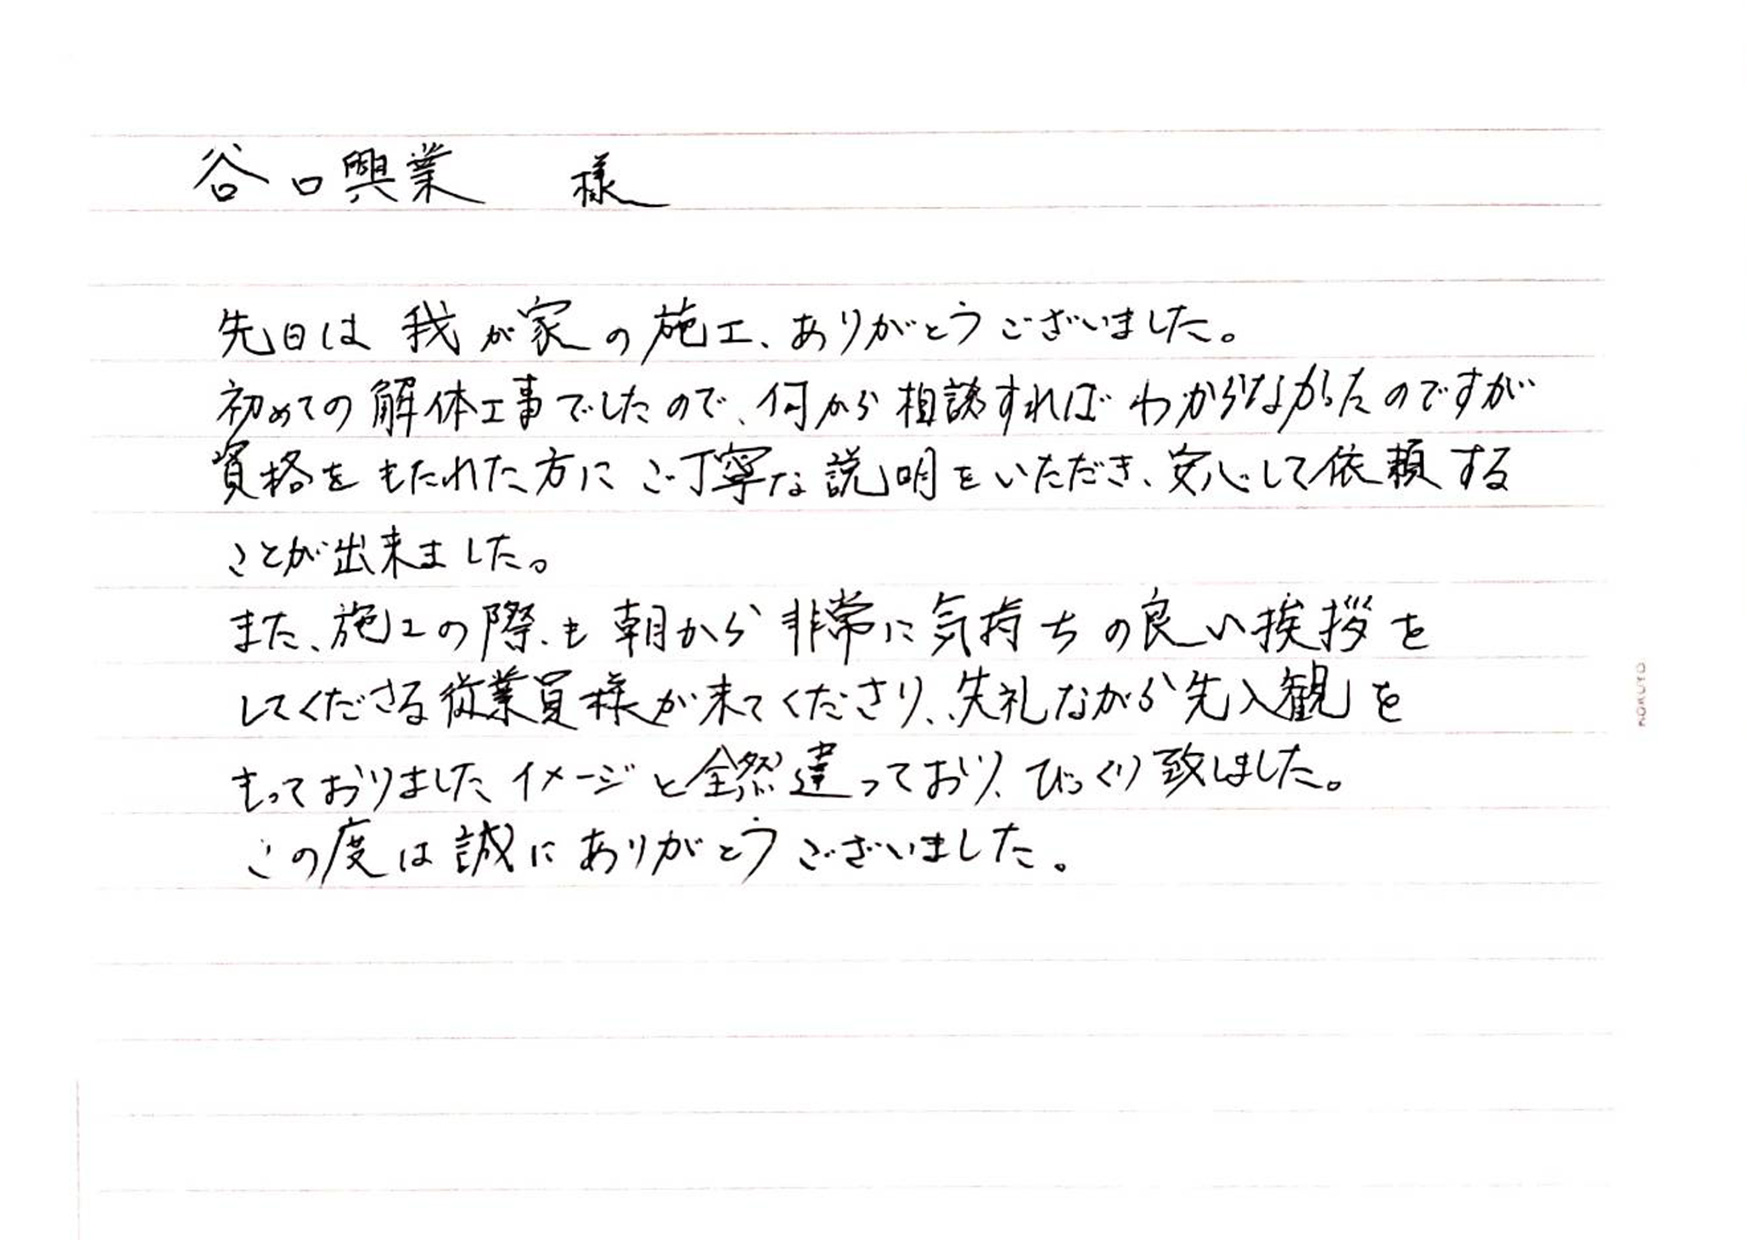 谷口興業　様
先日は我が家の施工、ありがとうございました。
初めての解体工事でしたので、何から相談すればわからなかったのですが
資格をもたれた方にご丁寧な説明をいただき、安心して依頼する
ことが出来ました。
また、施工の際も朝から非常に気持ちの良い挨拶を
してくださる従業員様が来てくださり、失礼ながら先入観を
もっておりましたイメージと全然違っており、びっくり致しました。
この度は誠にありがとうございました。
KOKUYO